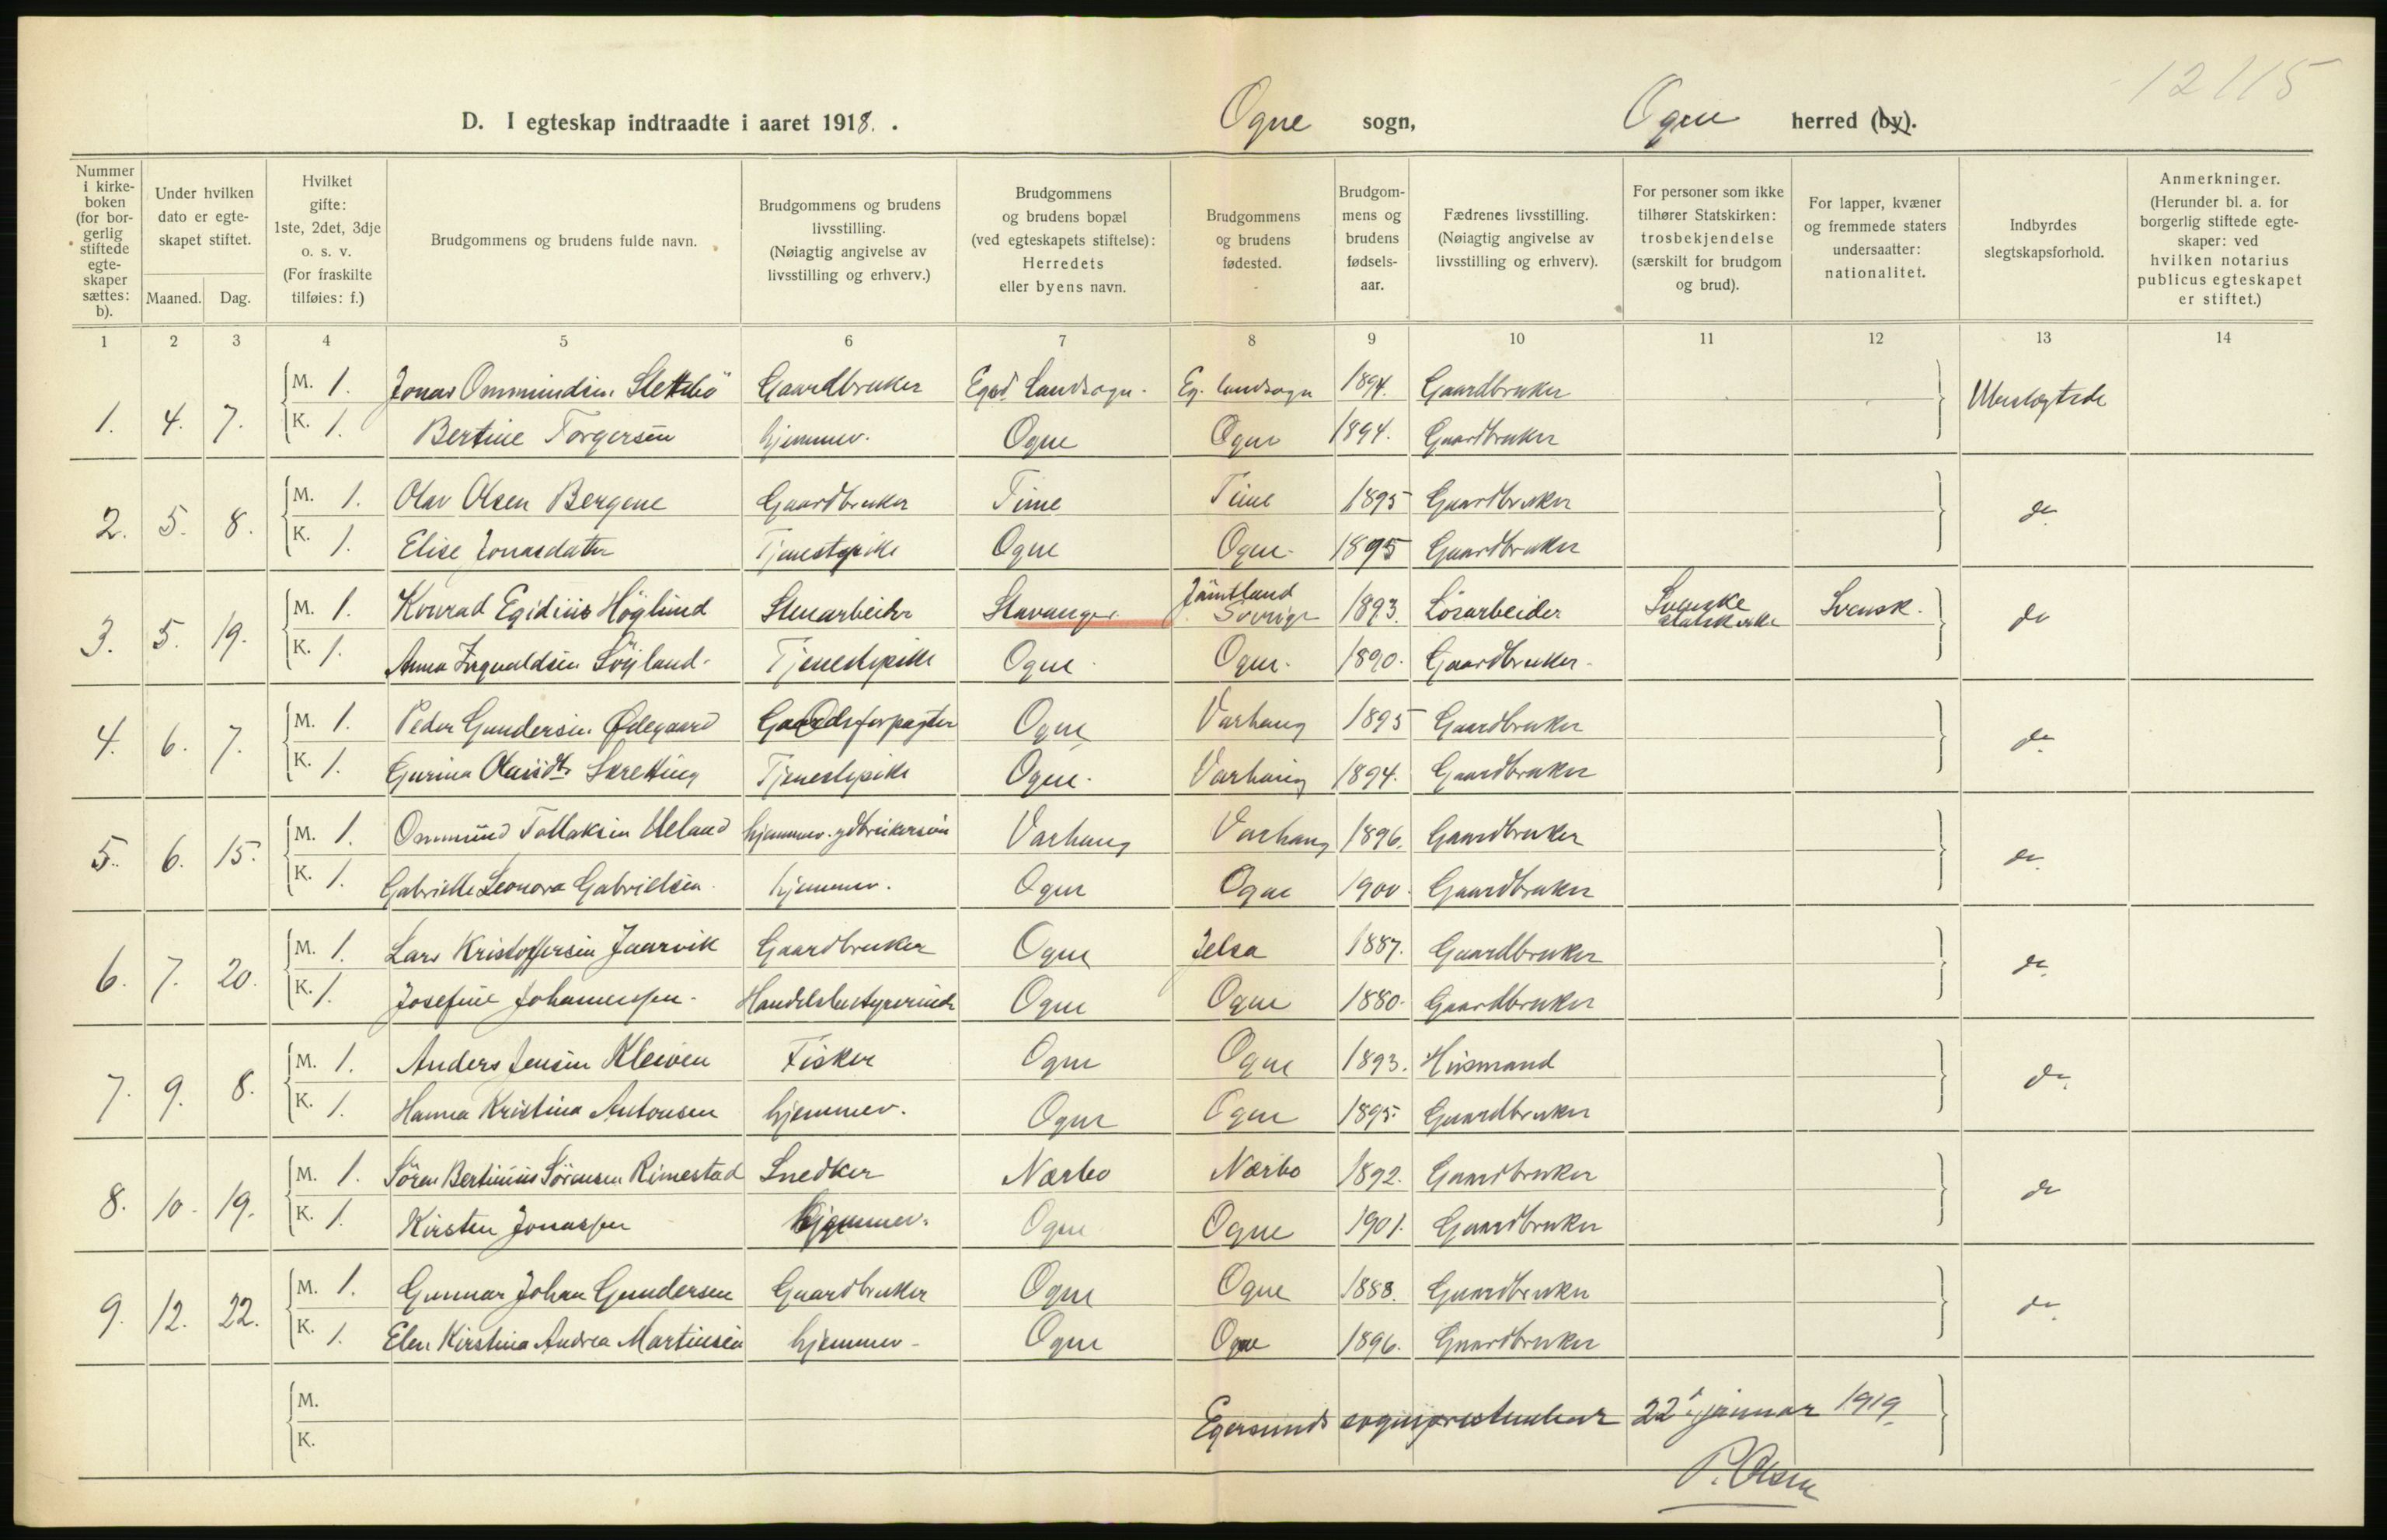 12115
D. I egteskap indtraadte i aaret 1918. . Ogne sogn, Ogne herred (by).
Nummer i kirke-boken (for bor-gerlig stiftede egte-skaper sættes: b).
Under hvilken dato er egte-skapet stiftet.
Maaned. Dag.
Hvilket gifte: 1ste, 2det, 3dje o. s. v. (For fraskilte tilføies: f.)
Brudgommens og brudens fulde navn.
Brudgommens og brudens livsstilling. (Nøiagtig angivelse av livsstilling og erhverv.)
Brudgommens og brudens bopæl (ved egteskapets stiftelse): Herredets eller byens navn.
Brudgommens og brudens fødested.
Brudgom-mens og brudens fødsels-aar.
Fædrenes livsstilling. (Nøiagtig angivelse av livsstilling og erhverv).
For personer som ikke tilhører Statskirken: trosbekjendelse (særskilt for brudgom og brud).
For lapper, kvæner og fremmede staters undersaatter: nationalitet.
Indbyrdes slegtskapsforhold.
Anmerkninger. (Herunder bl. a. for borgerlig stiftede egte-skaper: ved hvilken notarius publicus egteskapet er stiftet.)
1 2 3 4 5 6 7 8 9 10 11 12 13 14
1. 4. 7. M. 1. Jonas Ommundsen Slettebö Gaardbruker Egsd. Landsogn. Eg. landsogn 1894. Gaardbruker Ubeslegtede
K. 1. Bertine Torgersen hjemmev. Ogne Ogne 1894. Gaardbruker
2. 5. 8. M. 1. Olav Olsen Bergene Gaardbruker Time Time 1895 Gaardbruker do
K. 1. Elise Jonasdatter Tjenestepike Ogne Ogne 1895 Gaardbruker
3. 5. 19. M. 1. Konrad Egidius Höglund Stenarbeider Stavanger Jämtland Sverige 1893. Lösarbeider Svenske statskirke Svensk. do
K. 1. Anna Ingvaldsen Söyland. Tjenestepike Ogne Ogne. 1890. Gaardbruker.
4. 6. 7. M. 1. Peder Gundersen Ødegaard Gaardsforpagter Ogne Varhaug 1895 Gaardbruker do
K. 1. Gurina Olausdtr. Skretting Tjenestepike Ogne. Varhaug 1894. Gaardbruker
5. 6. 15. M. 1. Ommund Tollaksen Ueland hjemmev. gdbrukersøn Varhaug Varhaug 1896. Gaardbruker do
K. 1. Gabrielle Leonora Gabrielsen. hjemmev. Ogne Ogne 1900. Gaardbruker
6. 7. 20. M. 1. Lars Kristoffersen Jaarvik Gaardbruker Ogne Jelsa 1887. Gaardbruker do
K. 1. Josefine Johannessen. Handelsbestyrerinde Ogne Ogne 1880. Gaardbruker
7. 9. 8. M. 1. Anders Jensen Kleiven Fisker Ogne Ogne 1893. Husmand do
K. 1. Hanna Kristina Antonsen hjemmev. Ogne Ogne 1895. Gaardbruker
8. 10. 19. M. 1. Sören Bertinius Sörensen Rimestad Snedker Nærbo Nærbo 1892. Gaardbruker do
K. 1. Kirsten Jonassen hjemmev. Ogne Ogne 1901. Gaardbruker
9. 12. 22. M. 1. Gunnar Johan Gundersen Gaardbruker Ogne Ogne 1888. Gaardbruker do
K. 1. Elen Kirstina Andrea Martinsen hjemmev. Ogne Ogne 1896. Gaardbruker
M.
K.
Egersunds sogneprestembede 22. januar 1919.
P. Olsen